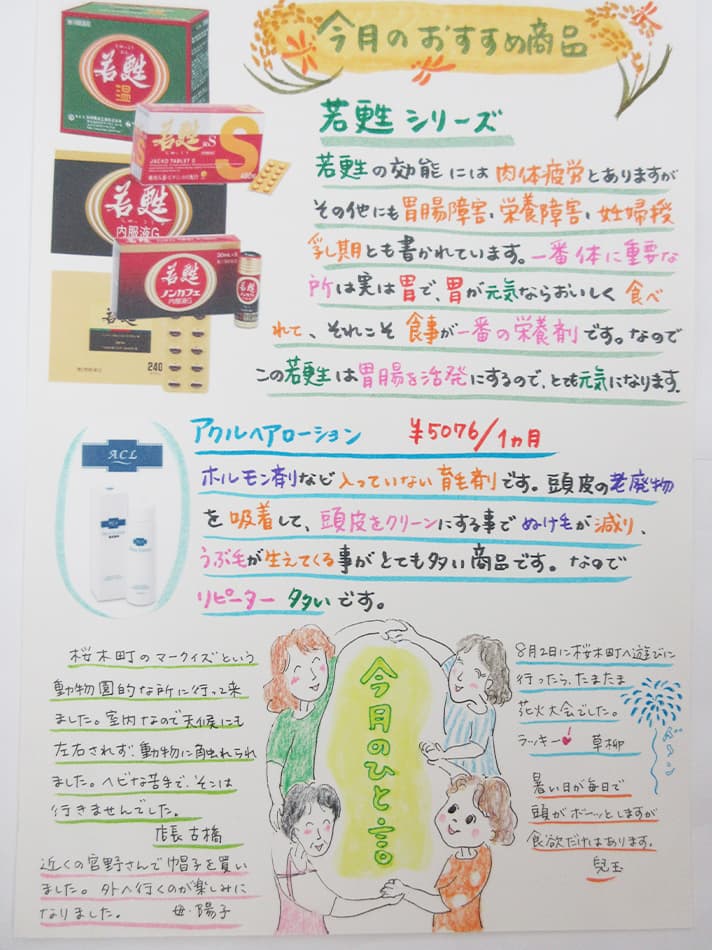 今月のおすすめ商品
若甦
温
若甦
錠S
S
JACKO TABLET S
若甦
内服液G
30mL×3
若甦
ノンカフェ
内服液G
若甦
240
若甦シリーズ
若甦の効能には肉体疲労とありますが
その他にも胃腸障害、栄養障害、妊婦授
乳期とも書かれています。一番体に重要な
所は実は胃で、胃が元気ならおいしく食べ
れて、それこそ食事が一番の栄養剤です。なので
この若甦は胃腸を活発にするので、とても元気になります。
ACL
アクルヘアローション ¥5076/1ヵ月
ホルモン剤など入っていない育毛剤です。頭皮の老廃物
を吸着して、頭皮をクリーンにする事でぬけ毛が減り、
うぶ毛が生えてくる事がとても多い商品です。なので
リピーター多いです。
今月のひと言
桜木町のマークイズという
動物園的な所に行って来
ました。室内なので天候にも
左右されず、動物にも触れられ
ました。ヘビは苦手で、そこは
行きませんでした。
店長 古橋
近くの宮野さんで帽子を買い
ました。外へ行くのが楽しみに
なりました。 母・陽子
8月2日に桜木町へ遊びに
行ったら、たまたま
花火大会でした。
ラッキー 草柳
暑い日が毎日で
頭がボーッとしますが
食欲だけはあります。
児玉